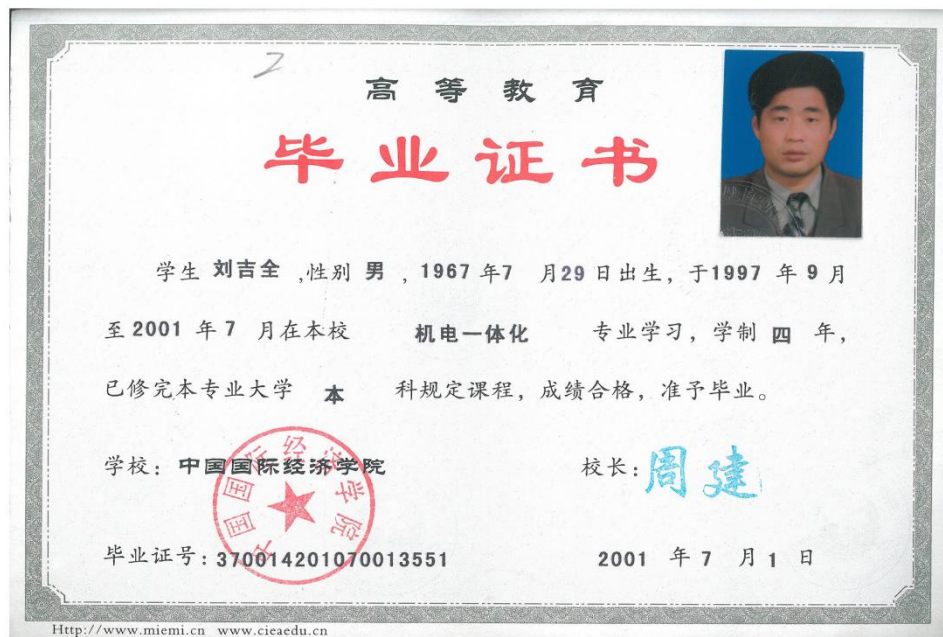 2
高等教育
毕业证书
学生 刘吉全 ,性别 男 , 1967 年7 月29 日出生, 于1997 年 9 月
至2001 年 7 月在本校 机电一体化 专业学习, 学制 四 年,
已修完本专业大学 本 科规定课程, 成绩合格, 准予毕业。
学校: 中国国际经济学院 校长: 周建
中国国际经济学院
毕业证号: 370014201070013551 2001 年 7 月 1 日
Http://www.miemi.cn www.cieaedu.cn